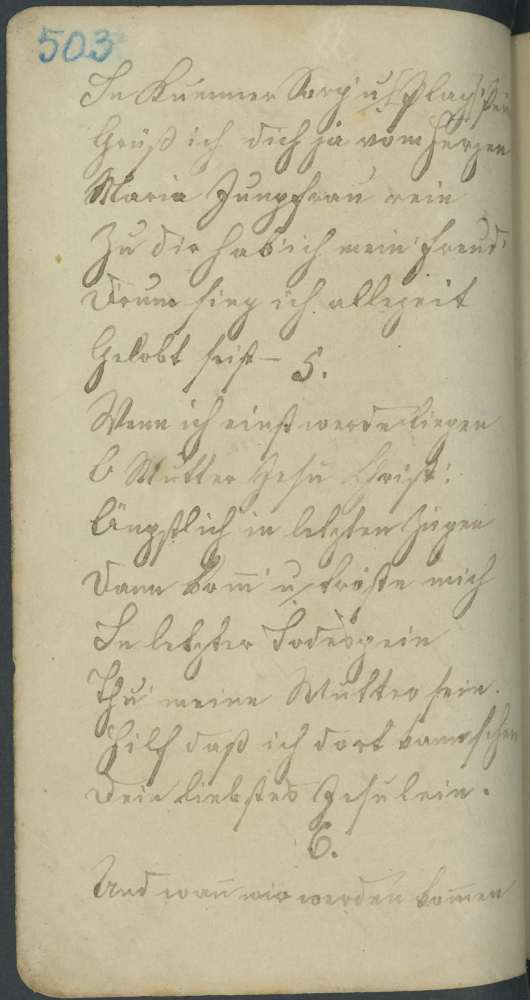 503
In Kummer Sorg' u. Plag'
Grüß ich dich ja vom Herzen
Maria Jungfrau rein
Zu dir hab' ich mein' Freud'
Drum sing ich allezeit
Gelobt seist – 5.
Wenn ich einst werde liegen
O Mutter Jesu Christ!
Ängstlich in letzten Zügen
Dann kom̅' u. tröste mich
In letzter Todespein
Thu' meine Mutter sein.
Hilf daß ich dort kann sehen
Dein liebstes Jesulein.
6.
Und wan̅ wir werden kom̅en